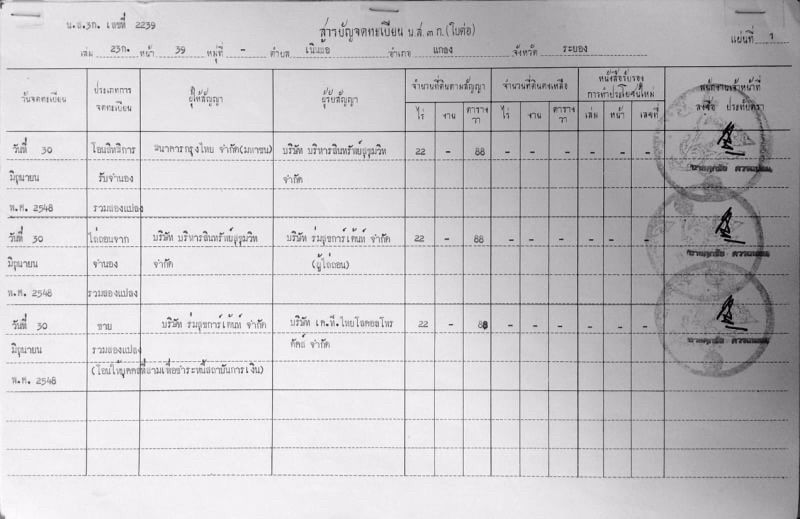 น.ส.3ก. เลขที่ 2239
สารบัญจดทะเบียน น.ส.๓ ก.(ใบต่อ)
แผ่นที่ 1
เล่ม 23ก. หน้า 39 หมู่ที่ - ตำบล เนินฆ้อ อำเภอ แกลง จังหวัด ระยอง
วันจดทะเบียน ประเภทการจดทะเบียน ผู้ให้สัญญา ผู้รับสัญญา จำนวนที่ดินตามสัญญา จำนวนที่ดินคงเหลือ หนังสือรับรองการทำประโยชน์ใหม่ พนักงานเจ้าหน้าที่ ลงชื่อ ประทับตรา
ไร่ งาน ตารางวา ไร่ งาน ตารางวา เล่ม หน้า เลขที่
วันที่ 30 โอนสิทธิการ ธนาคารกรุงไทย จำกัด(มหาชน) บริษัท บริหารสินทรัพย์สุขุมวิท 22 - 88 - - - - - -
มิถุนายน รับจำนอง จำกัด
พ.ศ. 2548 รวมสองแปลง
วันที่ 30 ไถ่ถอนจาก บริษัท บริหารสินทรัพย์สุขุมวิท บริษัท ร่มสุขการ์เด้นท์ จำกัด 22 - 88 - - - - - -
มิถุนายน จำนอง จำกัด (ผู้ไถ่ถอน)
พ.ศ. 2548 รวมสองแปลง
วันที่ 30 ขาย บริษัท ร่มสุขการ์เด้นท์ จำกัด บริษัท เค.ที.ไทยโลคอลโปร 22 - 88 - - - - - -
มิถุนายน รวมสองแปลง ดัคส์ จำกัด
พ.ศ. 2548 (โอนให้บุคคลที่สามเพื่อชำระหนี้สถาบันการเงิน)